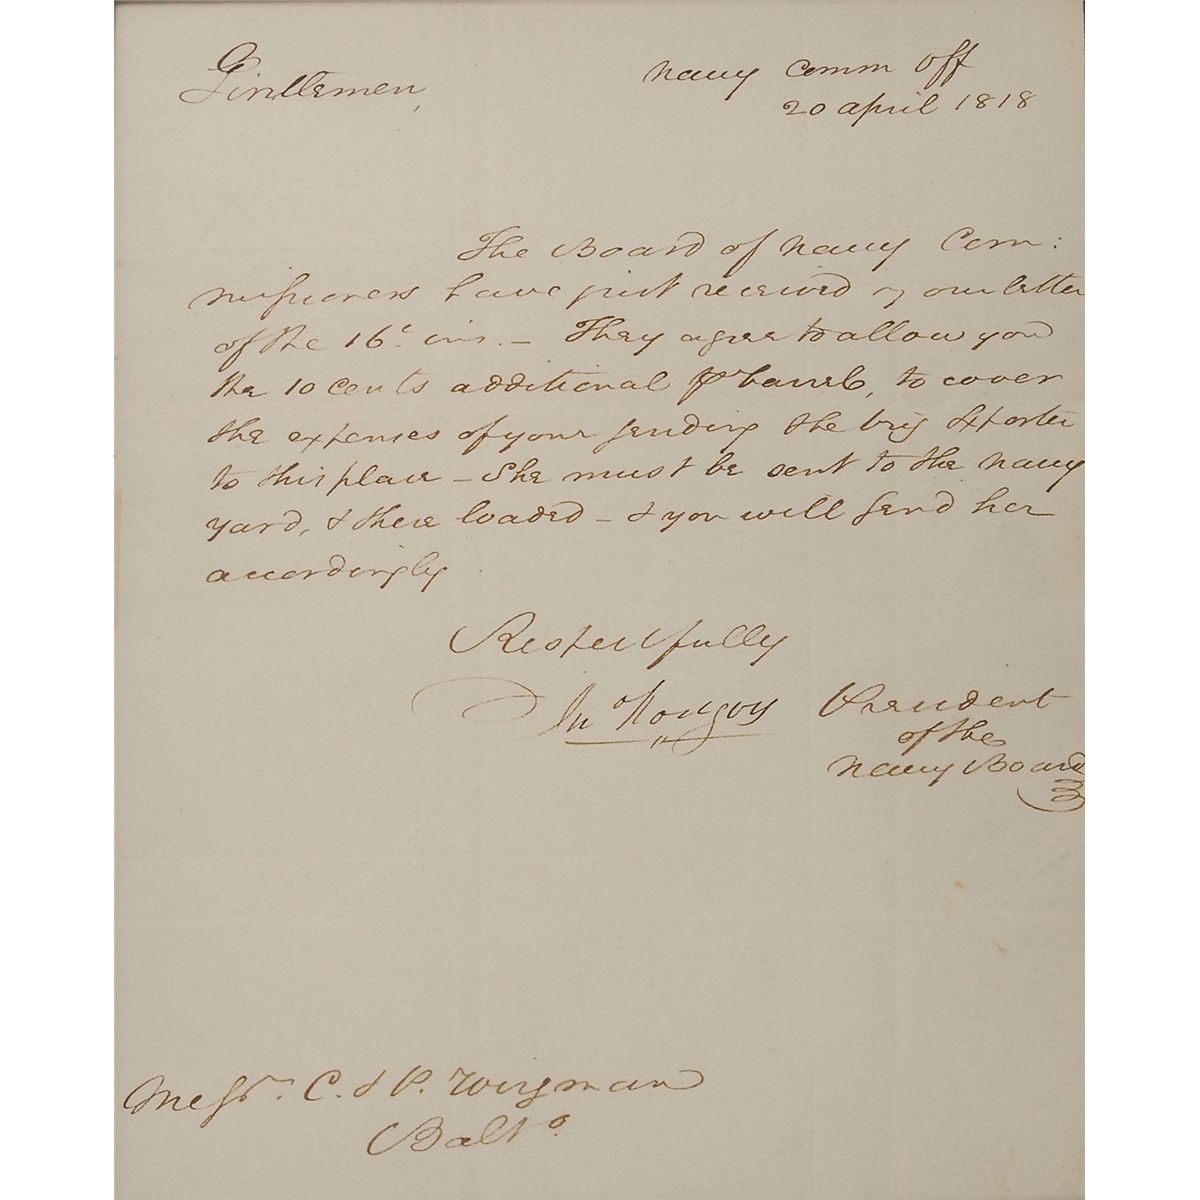 Gentlemen,
Navy Comm Off
20 april 1818
The Board of Navy Com:
missioners have just received your letter
of the 16t. ins. - They agree to allow you
the 10 cents additional ⅌ barrel, to cover
the expenses of your sending the brig Exporter
to this place - She must be sent to the Navy
yard, & there loaded - & you will send her
accordingly
Respectfully
Jn Rodgers President
of the
Navy Board
Messrs. C. & P. Wirgman
Balto.